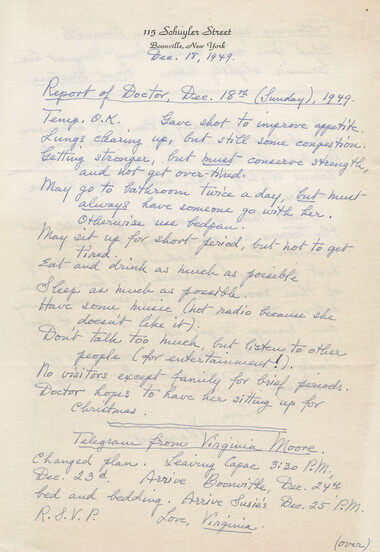 115 Schuyler Street
Boonville, New York
Dec. 18, 1949.
Report of Doctor, Dec. 18th (Sunday), 1949.
Temp. O.K. Gave shot to improve appetite.
Lungs clearing up, but still some congestion.
Getting stronger, but must conserve strength,
and not get over-tired.
May go to bathroom twice a day, but must
always have someone go with her.
Otherwise use bedpan.
May sit up for short period, but not to get
tired.
Eat and drink as much as possible
Sleep as much as possible
Have some music (not radio because she
doesn't like it).
Don't talk too much, but listen to other
people (for entertainment!).
No visitors except family for brief periods.
Doctor hopes to have her sitting up for
Christmas.
Telegram from Virginia Moore.
Changed plan. Leaving Capac 3:20 P.M.
Dec. 23d. Arrive Boonville, Dec. 24th
bed and bedding. Arrive Susie's Dec. 25 P.M.
R.S.V.P. Love, Virginia.
(over)